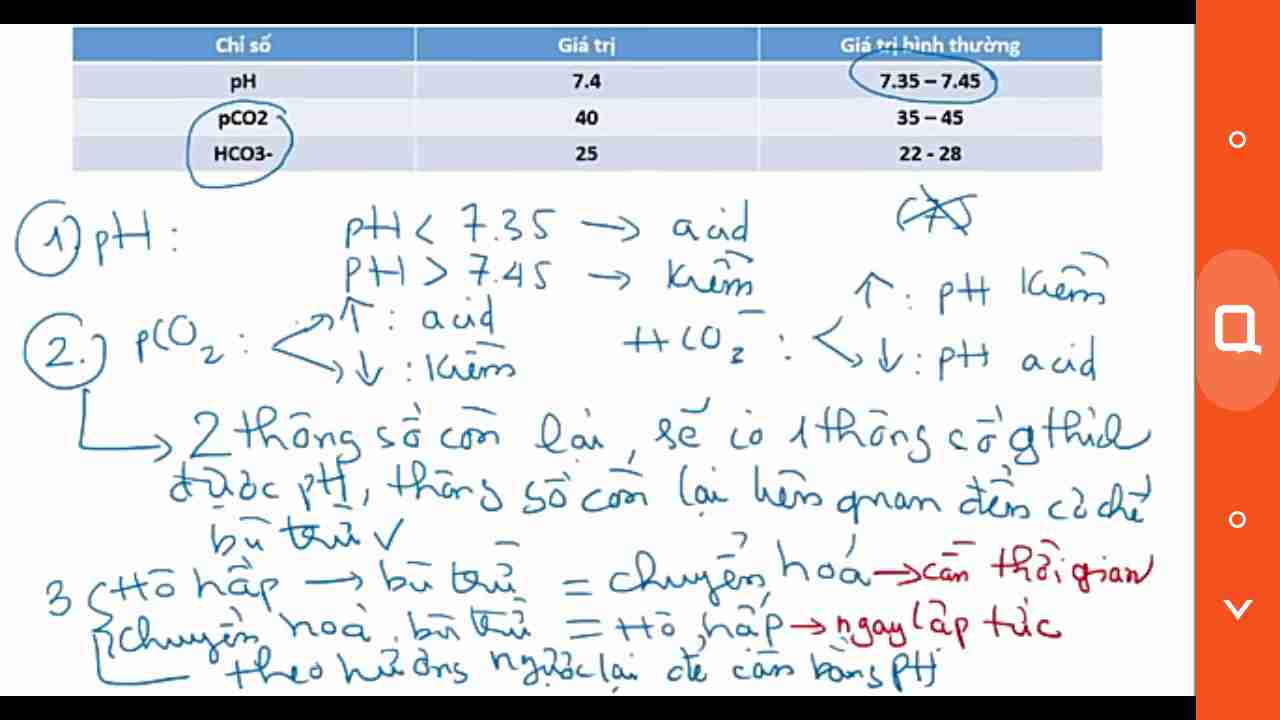 Chỉ số Giá trị Giá trị bình thường
pH 7.4 7.35 – 7.45
pCO2 40 35 – 45
HCO3- 25 22 - 28
1) pH : pH < 7.35 → acid (7)
pH > 7.45 → kiềm
2. pCO2 : ↑ : acid HCO3⁻ : ↑ : pH kiềm
↓ : kiềm ↓ : pH acid
2 thông số còn lại, sẽ có 1 thông số gthích
được pH, thông số còn lại liên quan đến cơ chế
bù trừ √
3 Hô hấp → bù trừ = chuyển hoá → cần thời gian
chuyển hoá bù trừ = Hô hấp → ngay lập tức
theo hướng ngược lại để cân bằng pH